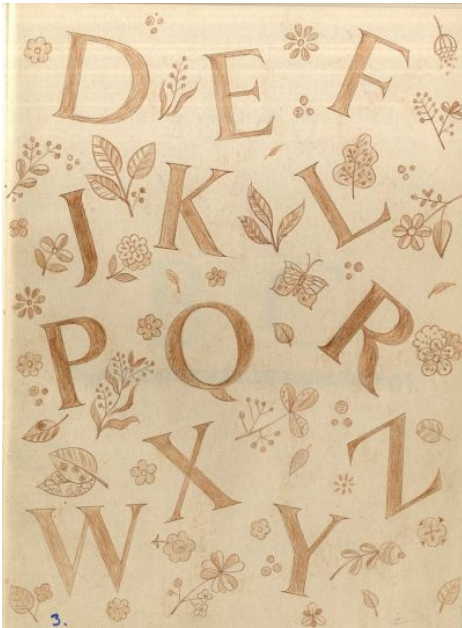 D E F
J K L
P Q R
X Z
W Y
3.